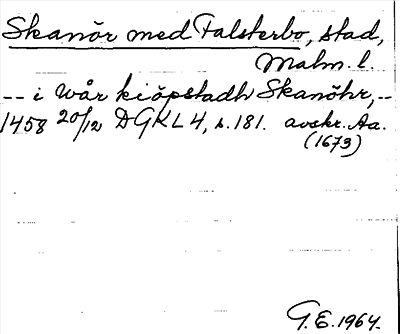 Skanör med Falsterbo, stad,
Malm. l.
-- i wår kiöpstadh Skanöhr, --
1458 20/12 DGKL 4, s. 181. avskr. Aa.
(1673)
G.E. 1964.